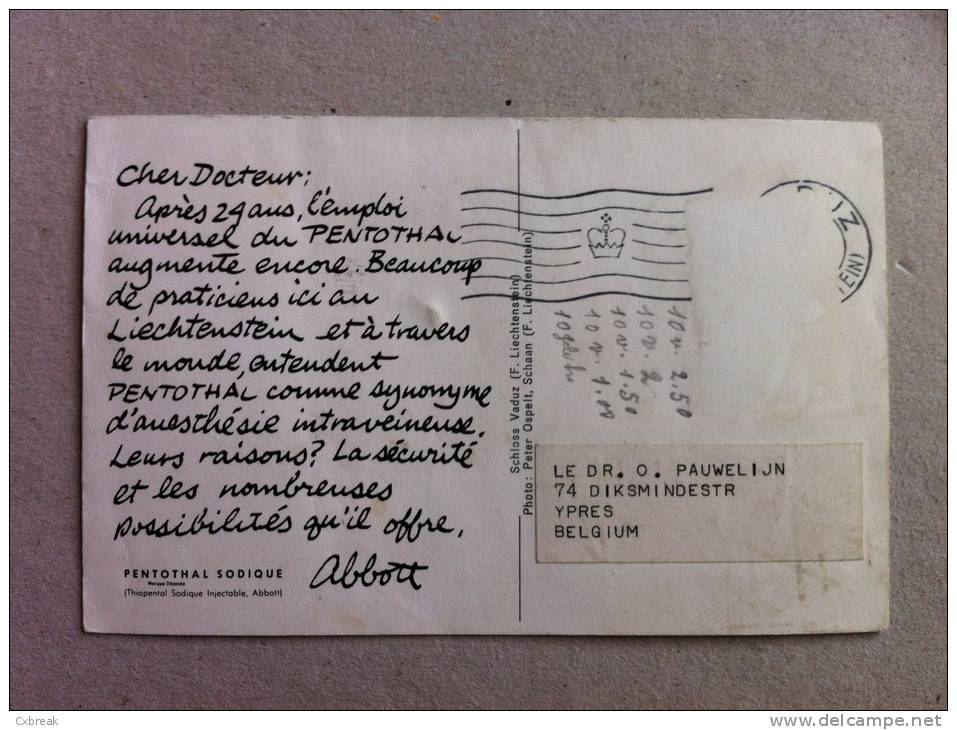 Cher Docteur:
Après 29 ans, l'emploi
universel du PENTOTHAL
augmente encore. Beaucoup
de praticiens ici au
Liechtenstein et à travers
le monde, entendent
PENTOTHAL comme synonyme
d'anesthésie intraveineuse.
Leurs raisons? La sécurité
et les nombreuses
possibilités qu'il offre.
Abbott
PENTOTHAL SODIQUE
Marque Déposée
(Thiopental Sodique Injectable, Abbott)
Schloss Vaduz (F. Liechtenstein)
Photo: Peter Ospelt, Schaan (F. Liechtenstein)
Z
EIN)
10 v. 2.50
10 v. 2
10 v. 1.50
10 v. 1.00
10
LE DR. O. PAUWELIJN
74 DIKSMINDESTR
YPRES
BELGIUM
Cxbreak
www.delcampe.net